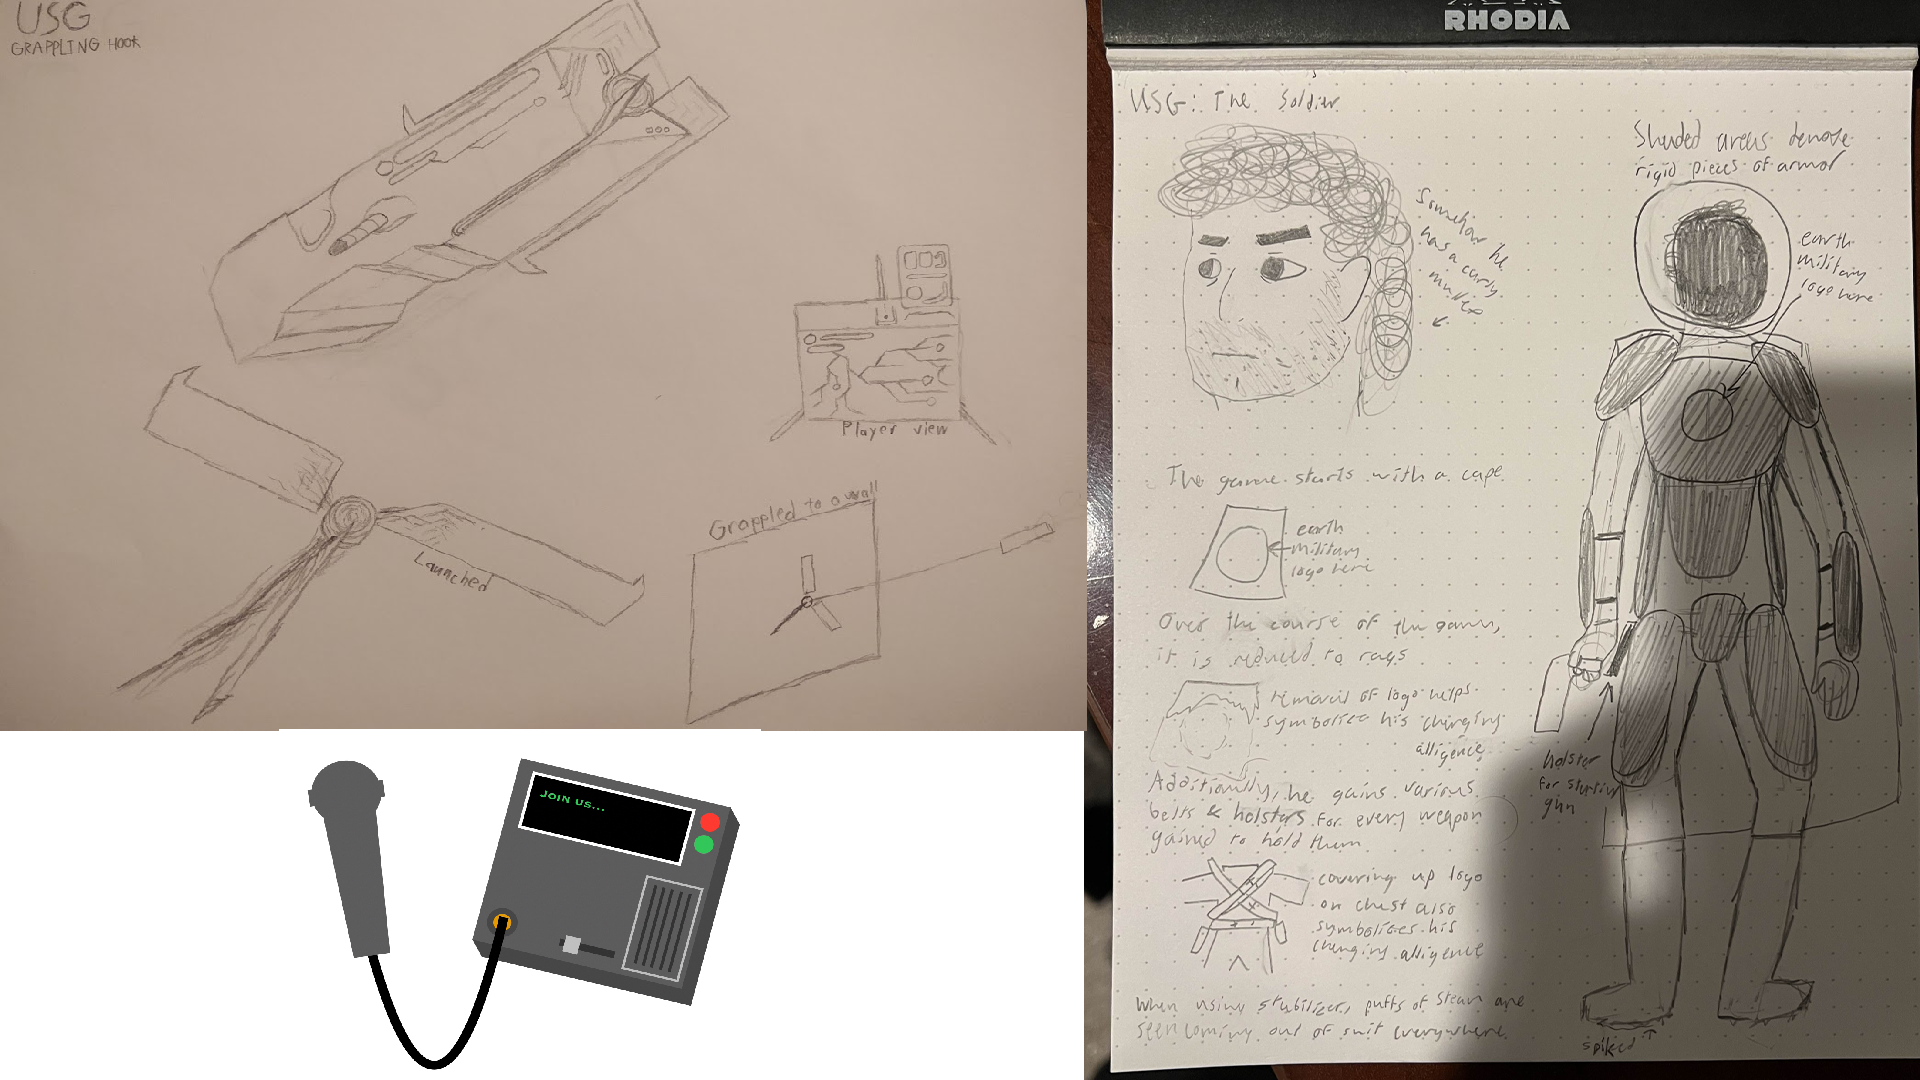 USG
GRAPPLING HOOK
Player view
Launched
Grappled to a wall
JOIN US...
RHODIA
USG: The Soldier
Somehow he
has a curly
mullet
Shaded areas denote
rigid pieces of armor
earth
military
logo here
The game starts with a cape
earth
military
logo here
Over the course of the game,
it is reduced to rags
removal of logo helps
symbolize his changing
alligence
Additionally, he gains various
belts & holsters for every weapon
gained to hold them
covering up logo
on chest also
symbolizes his
changing alligence
When using stabilizer, puffs of steam are
seen coming out of suit everywhere
holster
for
gun
spiked